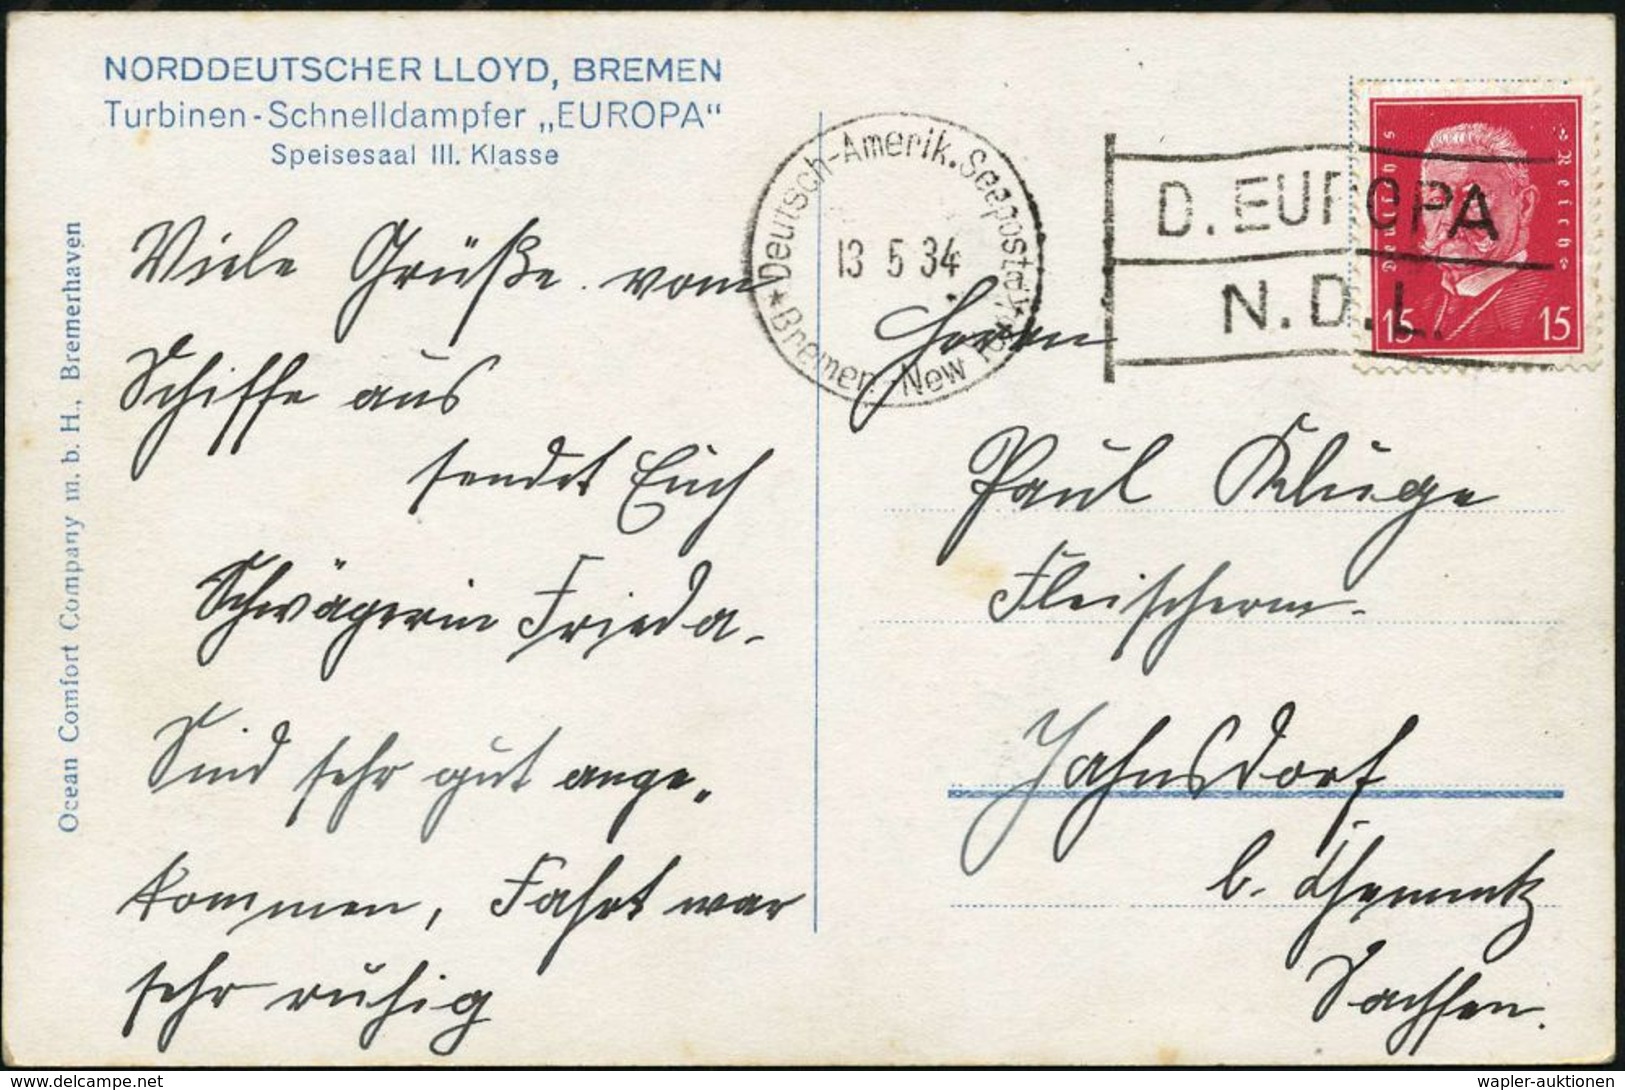 NORDDEUTSCHER LLOYD, BREMEN
Turbinen-Schnelldampfer „EUROPA“
Speisesaal III. Klasse
Ocean Comfort Company m. b. H., Bremerhaven
Viele Grüße vom
Schiffe aus
sendet Euch
Schwägerin Frieda.
Sind sehr gut ange-
kommen, Fahrt war
sehr ruhig
Deutsch-Amerik. Seepost
Bremen-New York
13 5 34
D. EUROPA
N.D.L.
Deutsches Reich
15 15
Herrn
Paul Kluge
Fleischerm.
Jahnsdorf
b. Chemnitz
Sachsen.
© wapler-auktionen